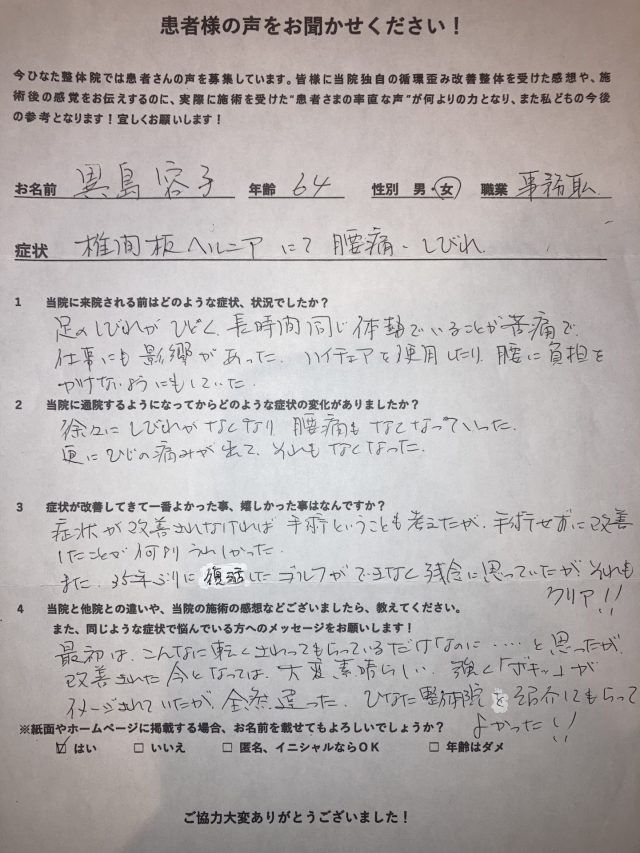 患者様の声をお聞かせください！
今ひなた整体院では患者さんの声を募集しています。皆様に当院独自の循環歪み改善整体を受けた感想や、施
術後の感覚をお伝えするのに、実際に施術を受けた“患者さまの率直な声”が何よりの力となり、また私どもの今後
の参考となります！宜しくお願いします！
お名前 異島容子 年齢 64 性別 男・女 職業 事務職
症状 椎間板ヘルニアにて腰痛・しびれ
1 当院に来院される前はどのような症状、状況でしたか？
足のしびれがひどく、長時間同じ体勢でいることが苦痛で、
仕事にも影響があった。ハイチェアを使用したり、腰に負担を
かけないようにもしていた。
2 当院に通院するようになってからどのような症状の変化がありましたか？
徐々にしびれがなくなり 腰痛もなくなっていった。
更にひじの痛みが出て、それもなくなった。
3 症状が改善してきて一番よかった事、嬉しかった事はなんですか？
症状が改善されなければ手術ということも考えたが、手術せずに改善
したことが何よりうれしかった。
また、35年ぶりに復活したゴルフができなく残念に思っていたが、それも
クリア！！
4 当院と他院との違いや、当院の施術の感想などございましたら、教えてください。
また、同じような症状で悩んでいる方へのメッセージをお願いします！
最初は、こんなに軽くさわってもらっているだけなのに・・・・と思ったが、
改善された今となっては、大変素晴らしい。強く「ボキッ」が
イメージされていたが、全然違った。ひなた整体院を紹介してもらって
よかった！！
※紙面やホームページに掲載する場合、お名前を載せてもよろしいでしょうか？
☑ はい □ いいえ □ 匿名、イニシャルならOK □ 年齢はダメ
ご協力大変ありがとうございました！